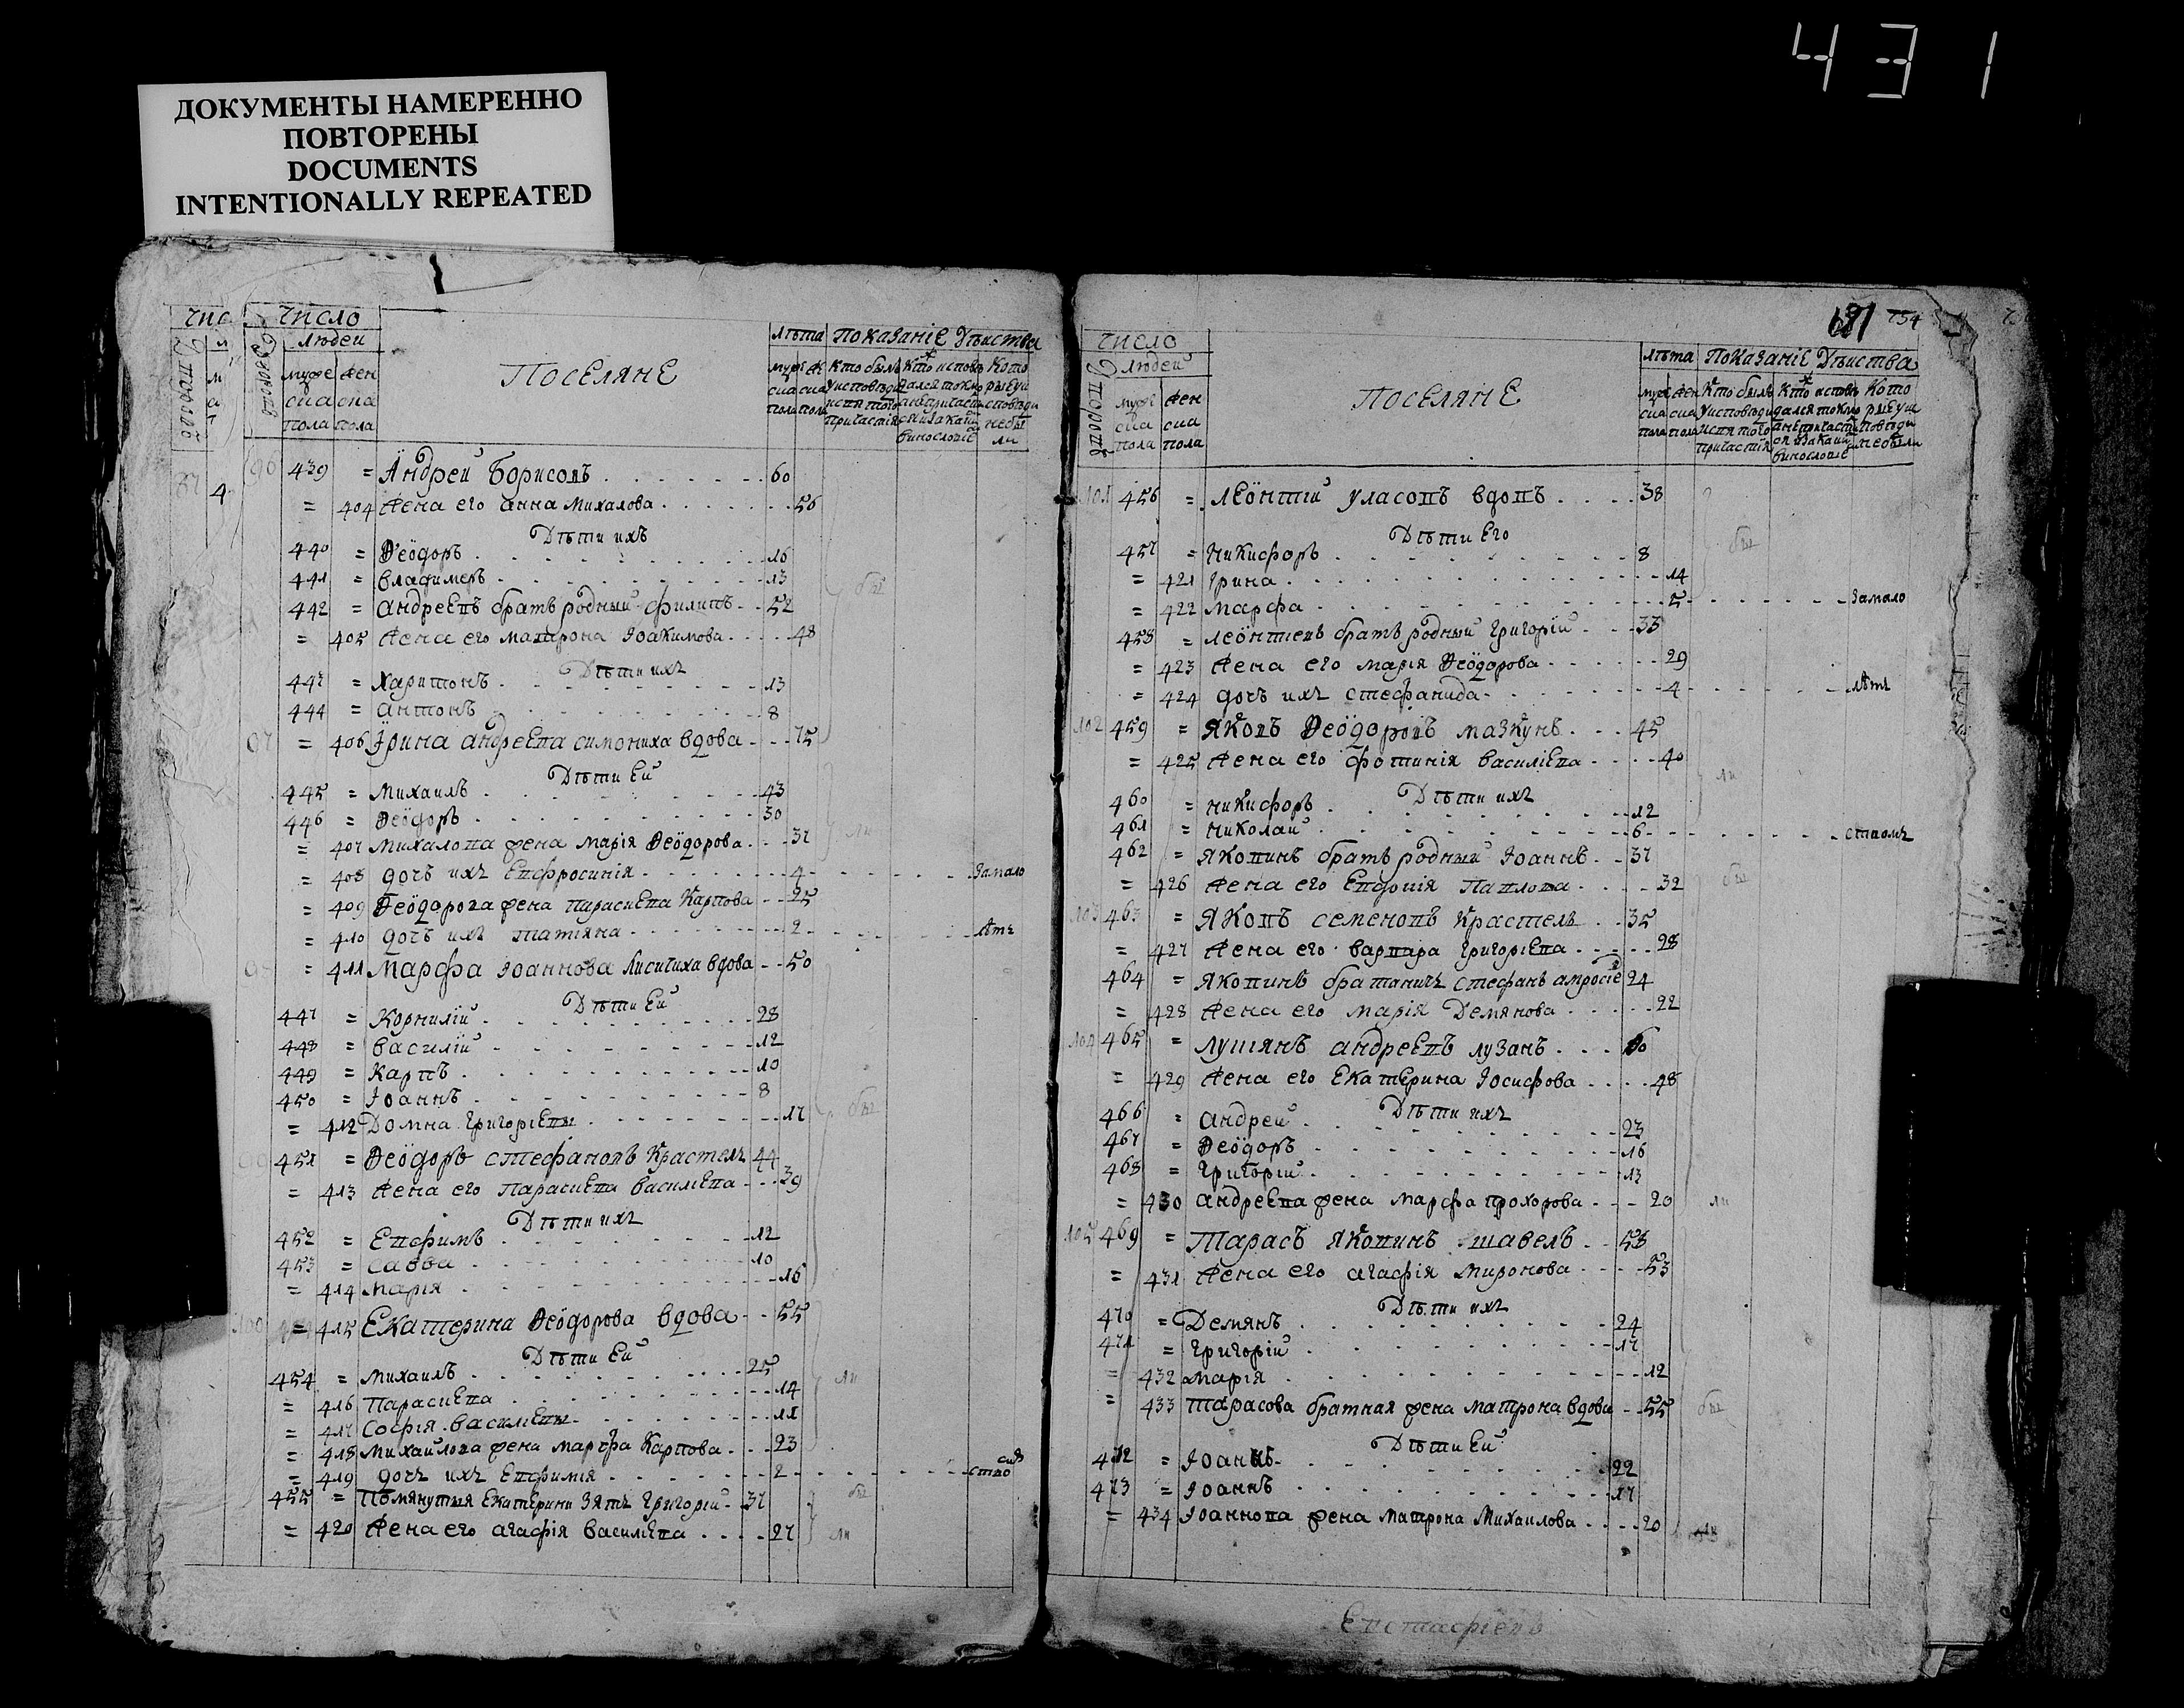 431
ДОКУМЕНТЫ НАМЕРЕННО
ПОВТОРЕНЫ
DOCUMENTS
INTENTIONALLY REPEATED
число
людей
мужеска пола женска пола
ПОСЕЛЯНЕ
лѣта Показаніе дѣиства
96 439 = Андреи Борисовъ 60
= 404 Жена его анна Михалова 56
Дѣти ихъ
440 = Ѳеодоръ 16
441 = владимеръ 13
442 = андреевъ братъ родныи филипъ 52
= 405 Жена его матрона Іоакимова 48
Дѣти ихъ
443 = Харитонъ 13
444 = антонъ 8
97 = 406 Ірина андреева симониха вдова 75
Дѣти Ей
445 = Михаилъ 43
446 = Ѳеодоръ 30
= 407 Михалова жена марія Ѳеодорова 37
= 408 дочъ ихъ Евфросинія 4 Замало
= 409 Ѳеодорова жена парасиева Карпова 25
= 410 дочъ ихъ татіяна 2 лѣтъ
98 = 411 Марфа Іоаннова Лисичиха вдова 50
Дѣти Ей
447 = Корнилій 28
448 = василій 12
449 = Карпъ 10
450 = Іоаннъ 8
= 412 Домна Григоріевы 17
99 451 = Ѳеодоръ стефановъ Крастелъ 44
= 413 Жена его Парасиева василіева 39
Дѣти ихъ
452 = Евфимъ 12
453 = Савва 10
= 414 Марія 16
100 = 415 Екатерина Ѳеодорова вдова 55
Дѣти Ей
454 = Михаилъ 25
= 416 Парасиева 14
= 417 Софія василіевы 11
= 418 Михаилова жена марфа Карпова 23
= 419 дочъ ихъ Евфимія 2
455 = Помянутыя Екатерини Зять Григорій 37
= 420 Жена его агафія василіева 27
181 754
число
людей
мужеска пола женска пола
ПОСЕЛЯНЕ
лѣта Показаніе дѣиства
101 456 = леонтій уласовъ вдовъ 38
Дѣти Его
457 = Никифоръ 8
= 421 Ірина 14
= 422 марфа 5 Замало
458 = леонтіевъ братъ родный Григорій 33
= 423 Жена его марія Ѳеодорова 29
= 424 дочъ ихъ стефанида 4 лѣтъ
102 459 = Яковъ Ѳеодоровъ мазкунъ 45
= 425 Жена его фотинія василіева 40
Дѣти ихъ
460 = никифоръ 12
461 = николай 6
462 = яковинъ братъ родный Іоаннъ 37
= 426 Жена его Евдокія Павлова 32
103 463 = Яковъ семеновъ Крастель 35
= 427 Жена его варвара Григоріева 28
464 = яковинъ братаничъ стефанъ 24
= 428 Жена его марія Демянова 22
104 465 = лукіянъ андреевъ лузанъ
= 429 Жена его Екатерина Іосифова 48
Дѣти ихъ
466 = андрей 23
467 = Ѳеодоръ 16
468 = Григорій 13
= 430 андреева жена марфа прохорова 20
105 469 = Тарасъ яковинъ шавелъ 58
= 431 Жена его агафія миронова 53
Дѣти ихъ
470 = Демянъ 24
471 = Григорій 17
= 432 марія 12
= 433 тарасова братная жена матрона вдова 55
Дѣти Ей
472 = Іоаннъ 22
473 = Іоаннъ 17
= 434 Іоаннова жена матрона Михаилова 20